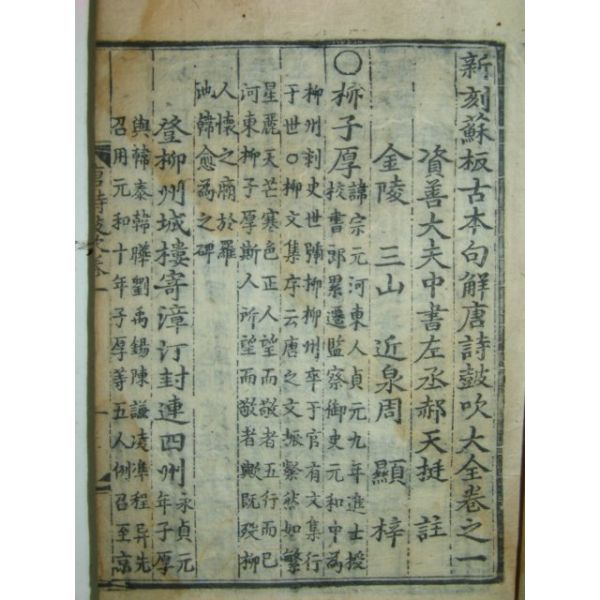 新刻蘇板古本句解唐詩鼓吹大全卷之一
資善大夫中書左丞郝天挺 註
金陵 三山 近泉周 顯 梓
〇柳子厚
諱宗元河東人貞元九年進士授
校書郎累遷監察御史元和中為
柳州刺史世號柳柳州卒于官有文集行
于世〇柳文集序云唐之文振燦然如繁
星麗天芒寒色正人望而敬者五行而已
河東柳子厚斯人所望而敬者歟既歿柳
人懷之廟於羅
池韓愈為之碑
登柳州城樓寄漳汀封連四州
永貞元
年子厚
與韓泰韓曄劉禹錫陳諫凌準程异先
召用元和十年子厚等五人例召至京
唐詩鼓吹卷一